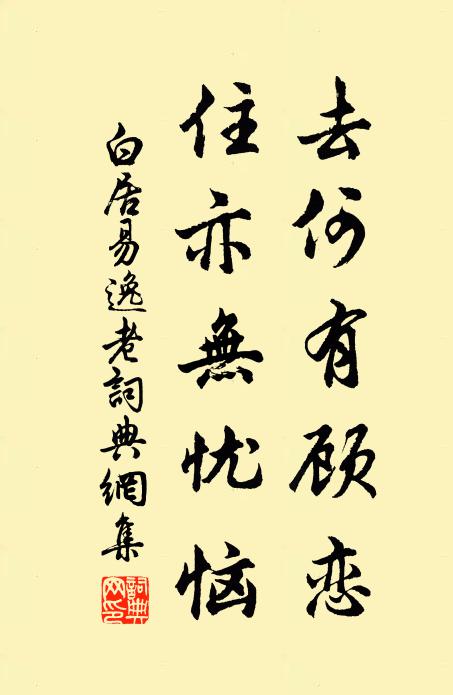 去何有顾恋
住亦無忧恼
白居易逸老詞典網集
詞典
网印